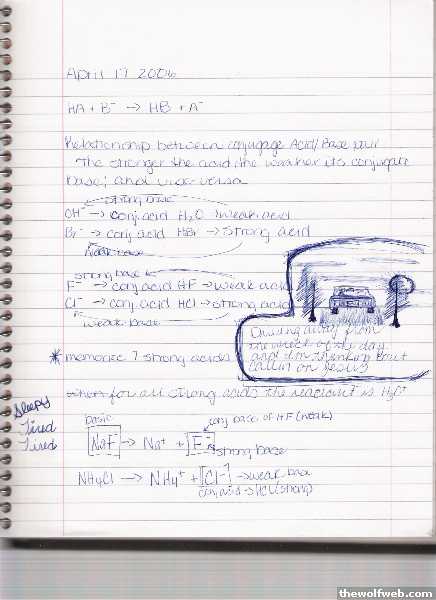 April 19 2006
HA + B⁻ → HB + A⁻
Relationship between conjugage Acid/Base pair
The stronger the acid, the weaker its conjugate
base; and vice versa
strong base
OH⁻ → conj acid H₂O weak acid
Br⁻ → conj acid HBr → strong acid
weak base
strong base
F⁻ → conj acid HF → weak acid
Cl⁻ → conj acid HCl → strong acid
weak base
Driving away from
the wreck of the day
and I'm thinking bout
callin on Jesus
* memorize 7 strong acids
for all strong acids the reactant is
Sleepy
Tired
Tired
basic
conj base of HF (weak)
NaF → Na⁺ + F⁻
strong base
NH₄Cl → NH₄⁺ + Cl⁻ → weak base
conj acid → HCl (strong)
thewolfweb.com